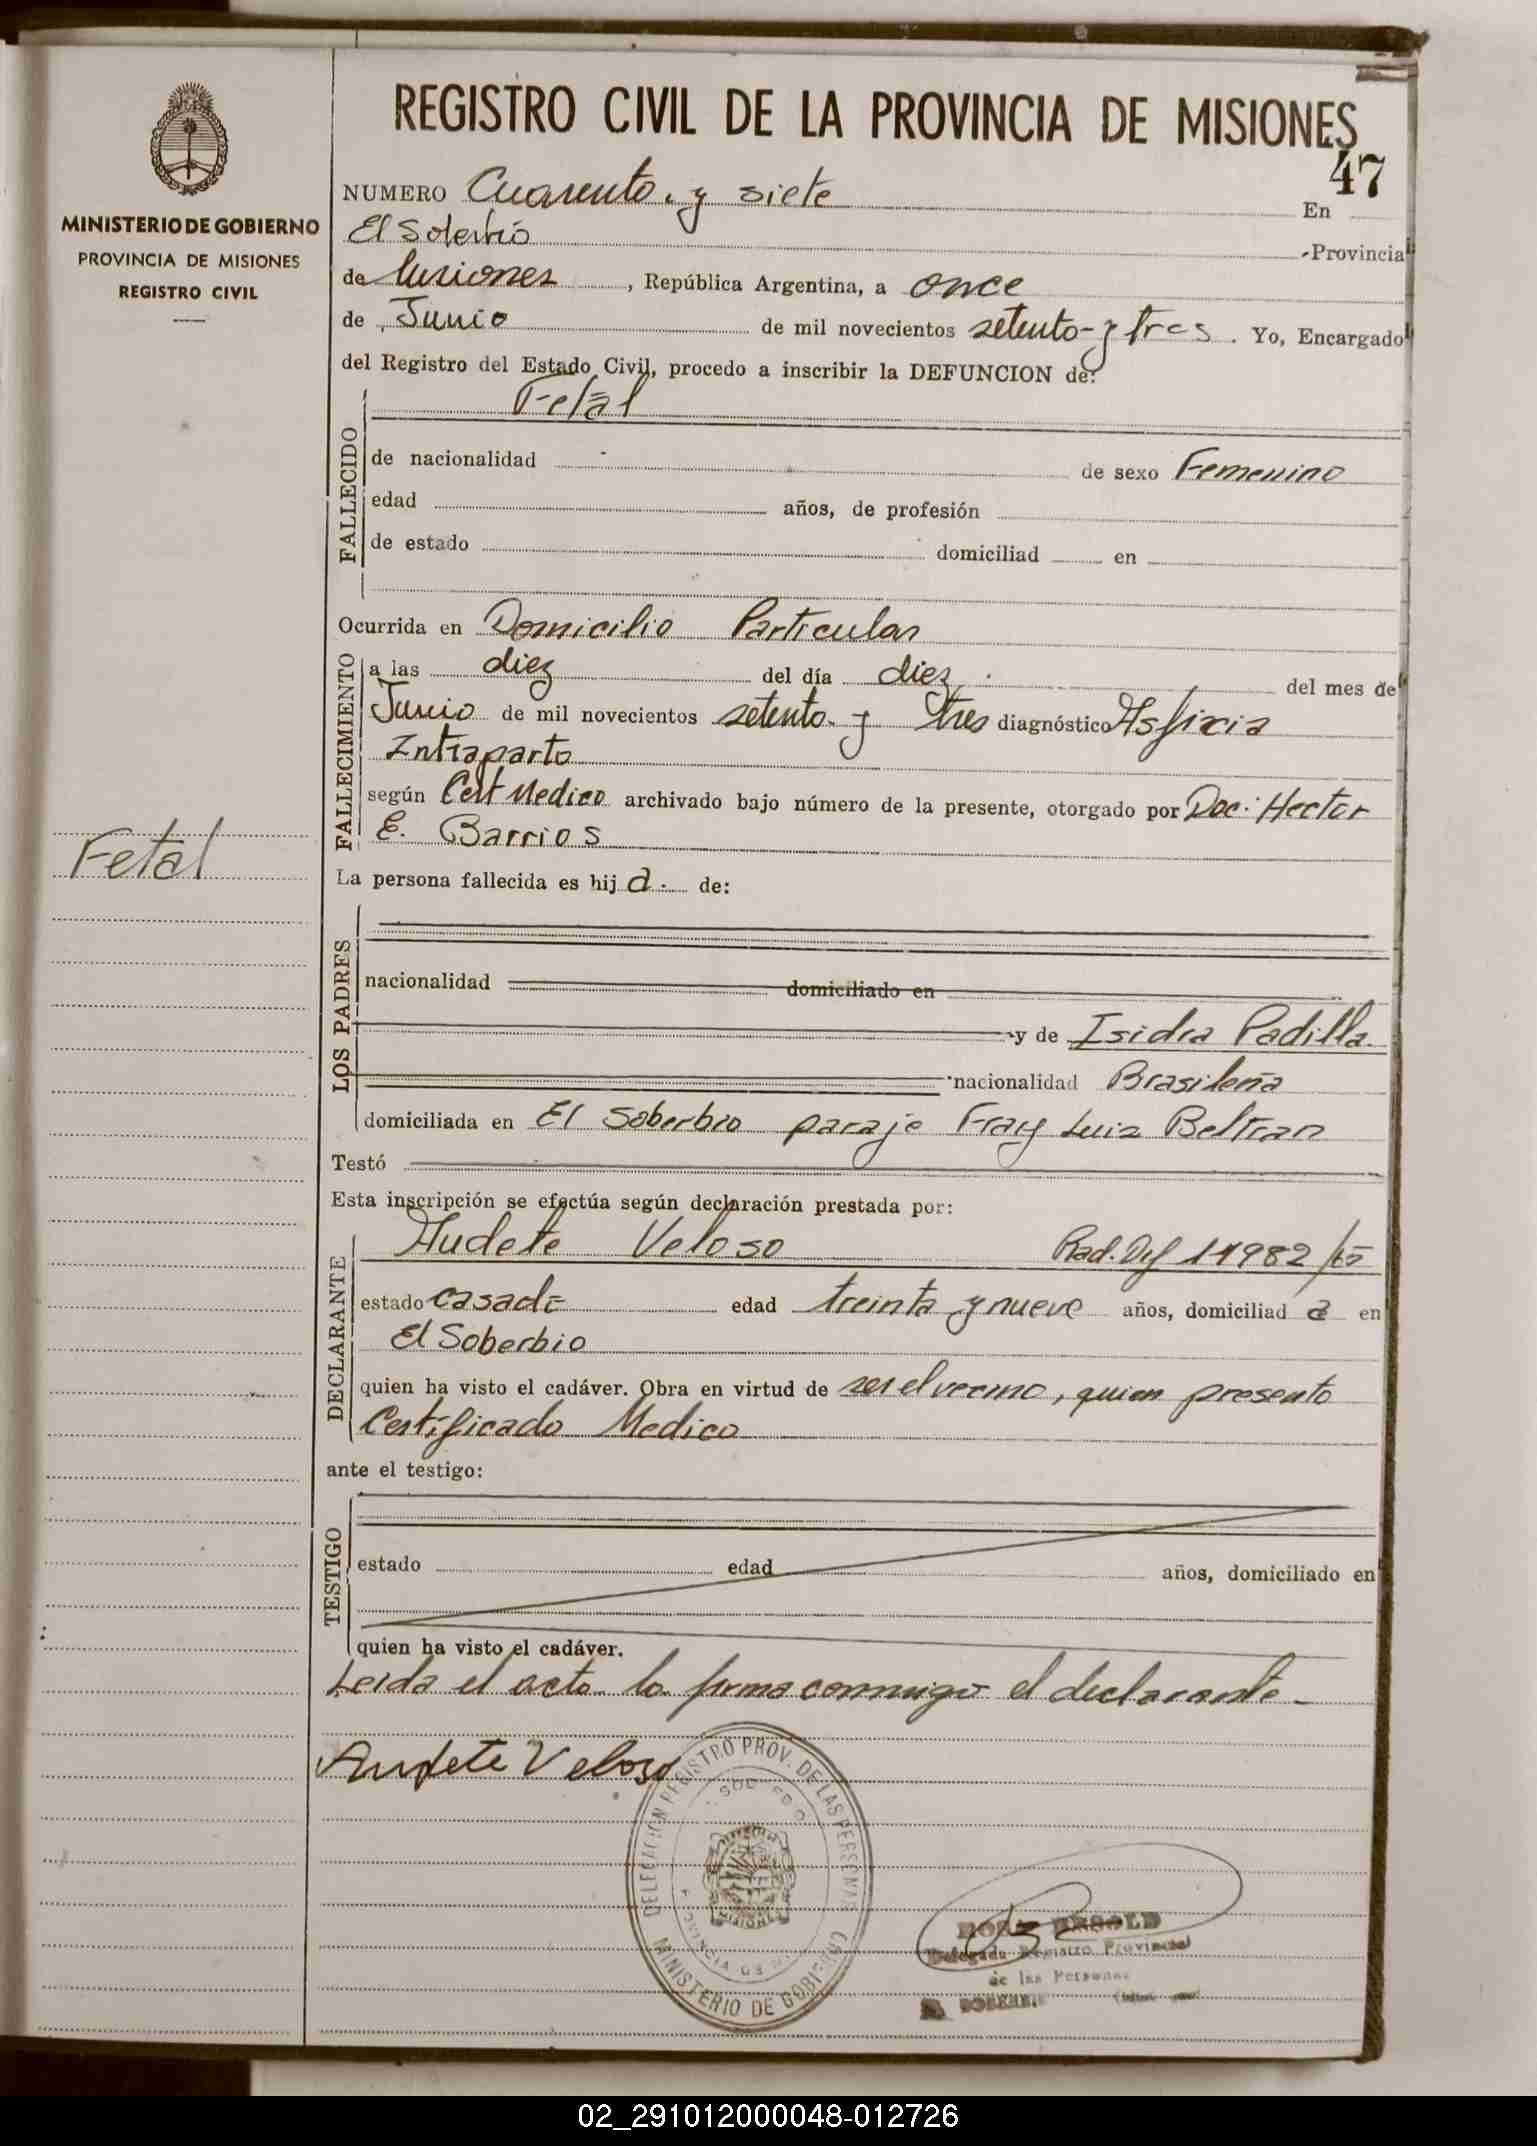 REGISTRO CIVIL DE LA PROVINCIA DE MISIONES
47
MINISTERIO DE GOBIERNO
PROVINCIA DE MISIONES
REGISTRO CIVIL
NUMERO Cuarenta y siete En
El Soberbio Provincia
de Misiones, República Argentina, a once
de Junio de mil novecientos setenta y tres. Yo, Encargado
del Registro del Estado Civil, procedo a inscribir la DEFUNCION de:
Fetal
FALLECIDO
de nacionalidad - de sexo Femenino
edad años, de profesión
de estado domiciliad en
Ocurrida en Domicilio Particular
FALLECIMIENTO
a las diez del día diez del mes de
Junio de mil novecientos setenta y tres diagnóstico Asficia
Intraparto
según Cert Medico archivado bajo número de la presente, otorgado por Doc: Hector
E. Barrios
Fetal
La persona fallecida es hij a. de:
LOS PADRES
nacionalidad domiciliado en
y de Isidra Padilla.
nacionalidad Brasileña
domiciliada en El Soberbio paraje Fray Luis Beltran
Testó
Esta inscripción se efectúa según declaración prestada por:
DECLARANTE
Audete Veloso Rad. 
estado casada edad treinta y nueve años, domiciliad a en
El Soberbio
quien ha visto el cadáver. Obra en virtud de ser el vecino, quien presento
Certificado Medico
ante el testigo:
TESTIGO
estado edad años, domiciliado en
quien ha visto el cadáver.
Leida el acta la firma conmigo el declarante-
Audete Veloso
DELEGACION REGISTRO PROV. DE LAS PERSONAS
MINISTERIO DE GOBIERNO
MISIONES
Delegada Registro Provincial
de las Personas
EL SOBERBIO
02_291012000048-012726